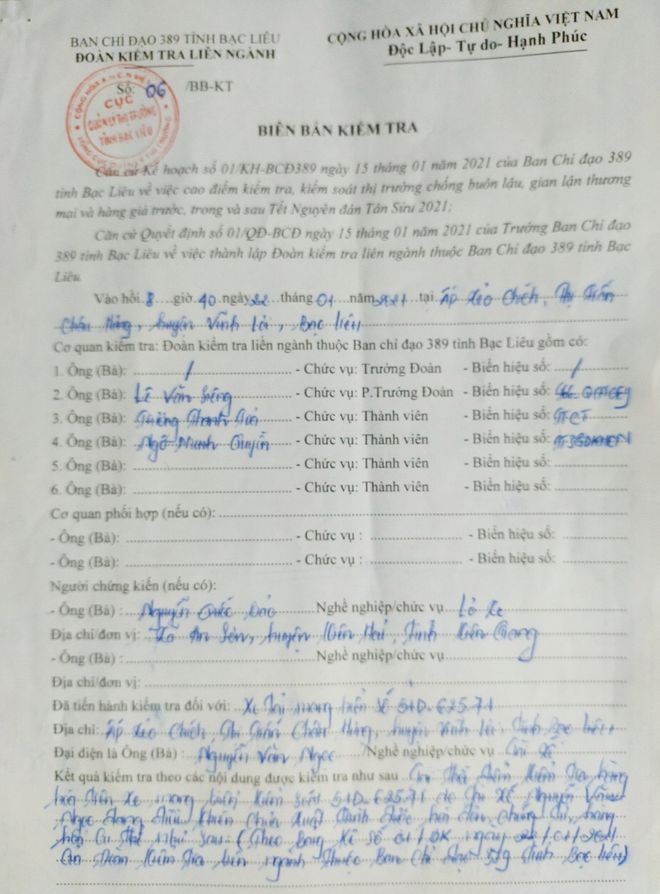 BAN CHỈ ĐẠO 389 TỈNH BẠC LIÊU
ĐOÀN KIỂM TRA LIÊN NGÀNH
CỘNG HÒA XÃ HỘI CHỦ NGHĨA VIỆT NAM
Độc Lập- Tự do- Hạnh Phúc
Số: 06 /BB-KT
CỤC
QUẢN LÝ THỊ TRƯỜNG
TỈNH BẠC LIÊU
BIÊN BẢN KIỂM TRA
Căn cứ Kế hoạch số 01/KH-BCĐ389 ngày 15 tháng 01 năm 2021 của Ban Chỉ đạo 389
tỉnh Bạc Liêu về việc cao điểm kiểm tra, kiểm soát thị trường chống buôn lậu, gian lận thương
mại và hàng giả trước, trong và sau Tết Nguyên đán Tân Sửu 2021;
Căn cứ Quyết định số 01/QĐ-BCĐ ngày 15 tháng 01 năm 2021 của Trưởng Ban Chỉ đạo
389 tỉnh Bạc Liêu về việc thành lập Đoàn kiểm tra liên ngành thuộc Ban Chỉ đạo 389 tỉnh Bạc
Liêu.
Vào hồi 8 giờ 40 ngày 22 tháng 01 năm 2021 tại Ấp Xẻo Chích, Thị Trấn
Châu Hưng, huyện Vĩnh Lợi, Bạc Liêu
Cơ quan kiểm tra: Đoàn kiểm tra liên ngành thuộc Ban chỉ đạo 389 tỉnh Bạc Liêu gồm có:
1. Ông (Bà): / - Chức vụ: Trưởng Đoàn - Biển hiệu số: /
2. Ông (Bà): Lê Văn - Chức vụ: P.Trưởng Đoàn - Biển hiệu số:
3. Ông (Bà): Thanh - Chức vụ: Thành viên - Biển hiệu số:
4. Ông (Bà): Ngô Minh - Chức vụ: Thành viên - Biển hiệu số:
5. Ông (Bà): - Chức vụ: Thành viên - Biển hiệu số:
6. Ông (Bà): - Chức vụ: Thành viên - Biển hiệu số:
Cơ quan phối hợp (nếu có):
- Ông (Bà): - Chức vụ : - Biển hiệu số:
- Ông (Bà): - Chức vụ : - Biển hiệu số:
Người chứng kiến (nếu có):
- Ông (Bà) : Nguyễn Quốc Bảo Nghề nghiệp/chức vụ Lơ Xe
Địa chỉ/đơn vị: Xã An Sơn, huyện Kiên Hải, Tỉnh Kiên Giang
- Ông (Bà) : Nghề nghiệp/chức vụ
Địa chỉ/đơn vị:
Đã tiến hành kiểm tra đối với: Xe Tải mang biển số 51D-625.71
Địa chỉ: Ấp Xẻo Chích, Thị Trấn Châu Hưng, huyện Vĩnh Lợi, Tỉnh Bạc Liêu
Đại diện là Ông (Bà) : Nguyễn Văn Ngọc /Nghề nghiệp/chức vụ Tài Xế
Kết quả kiểm tra theo các nội dung được kiểm tra như sau Tại Thời điểm kiểm Tra hàng
hóa Trên xe mang biển kiểm soát 51D-625.71 do Tài Xế Nguyễn Văn
Ngọc đang điều khiển xuất Trình hóa đơn chứng từ, hàng
hóa cụ Thể như sau: (Theo Bảng kê số 01/ ngày 22/01/2021
của Đoàn kiểm Tra liên ngành Thuộc Ban Chỉ đạo 389 Tỉnh Bạc Liêu)